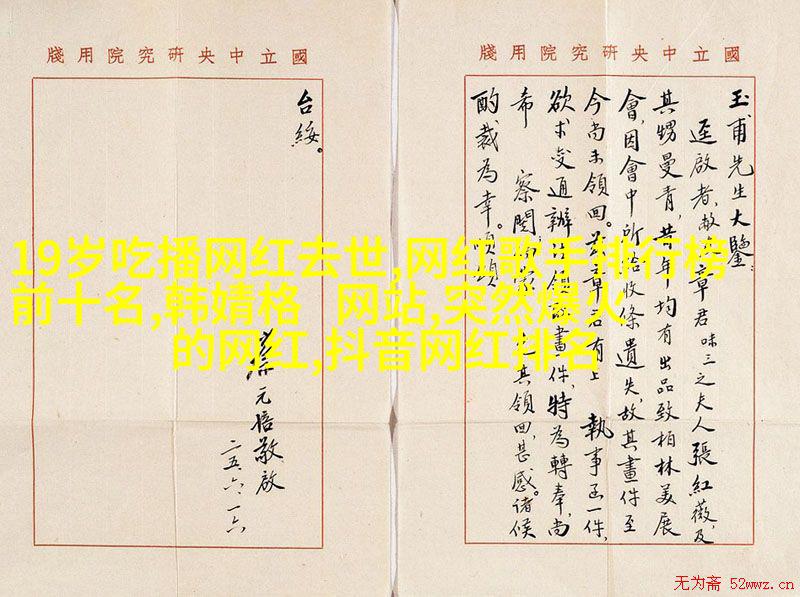 國立中央研究院用牋
玉甫先生大鑒
逕啟者,敝章君味三之夫人張紅薇,及
其甥曼青,昔年均有出品致柏林美展
會,因會中所給收條遺失,故其畫件至
今尚未領回。茲章君有上 執事函一件,
欲求變通辦領畫件,特為轉奉,尚
希 察閱其領回,甚感。諸候
酌裁為幸。順頌
國立中央研究院用牋
台綏。
蔡元培敬啟
二五、六、一六
19岁吃播网红去世,网红歌手排行榜
前十名,韩婧格 网站,突然爆火
的网红,抖音网红排名
无为斋 52wwz.cn